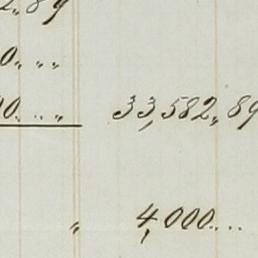 2,89
0.,,
00...,, 33,582,,89
,, 4,000...